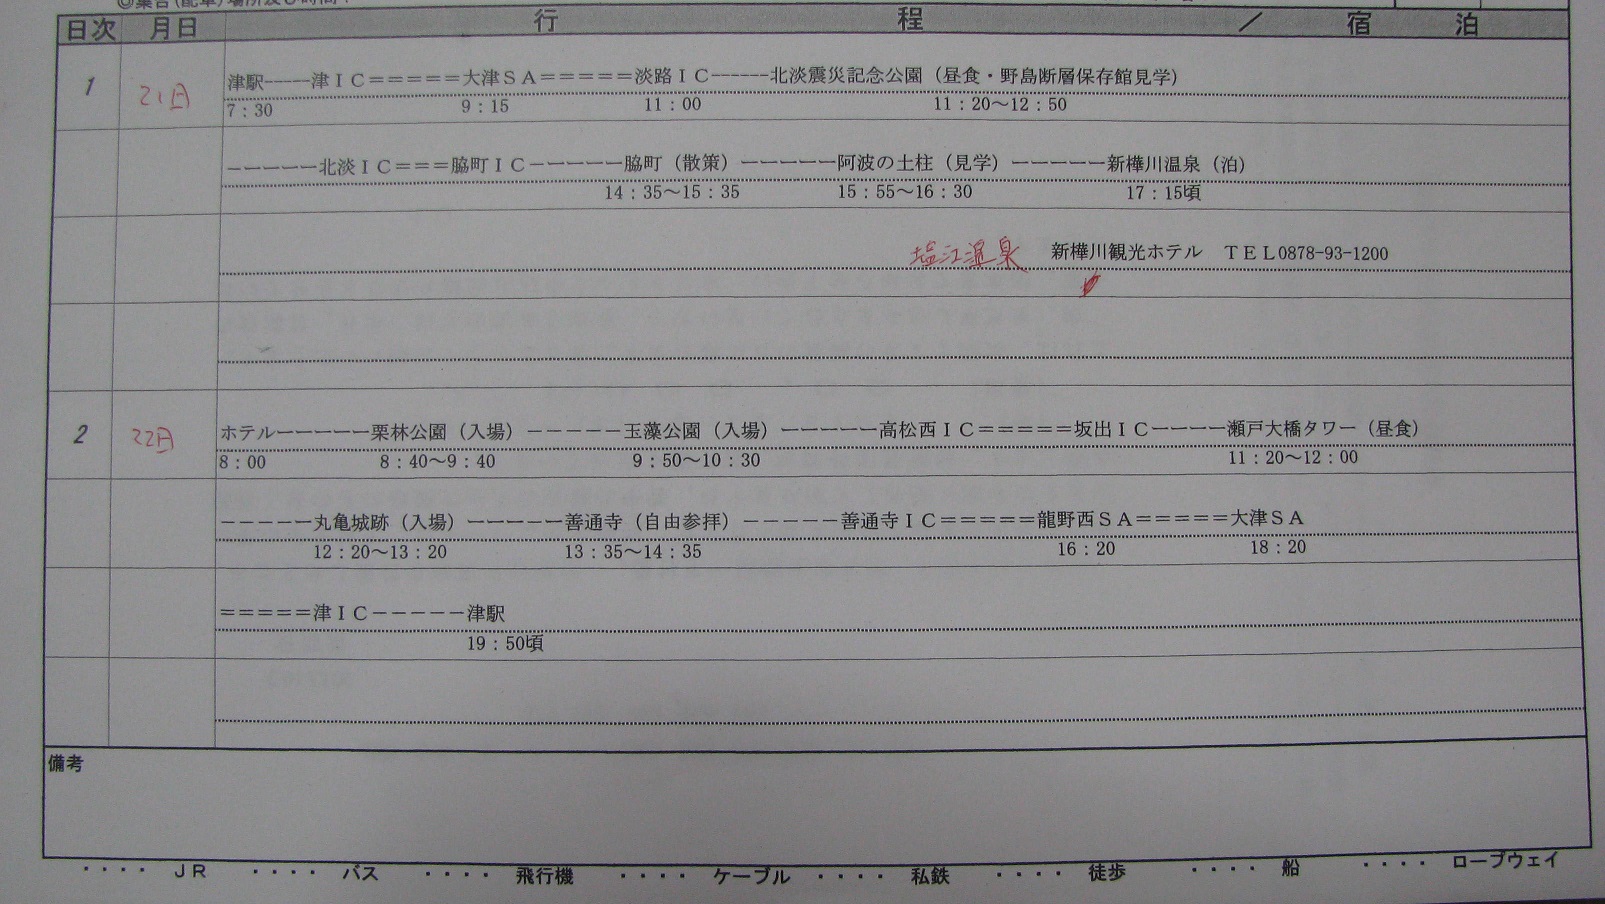 ◎集合(配車)場所及び時間：
日次 月日 行 程 ／ 宿 泊
1 21日 津駅-----津ＩＣ＝＝＝＝＝大津ＳＡ＝＝＝＝＝淡路ＩＣ------北淡震災記念公園（昼食・野島断層保存館見学）
7：30 9：15 11：00 11：20～12：50
－－－－－北淡ＩＣ＝＝＝脇町ＩＣ－－－－－脇町（散策）－－－－－阿波の土柱（見学）－－－－－新樺川温泉（泊）
14：35～15：35 15：55～16：30 17：15頃
塩江温泉 新樺川観光ホテル ＴＥＬ0878-93-1200
2 22日 ホテル－－－－－栗林公園（入場）－－－－－玉藻公園（入場）－－－－－高松西ＩＣ＝＝＝＝＝坂出ＩＣ－－－－瀬戸大橋タワー（昼食）
8：00 8：40～9：40 9：50～10：30 11：20～12：00
－－－－－丸亀城跡（入場）－－－－－善通寺（自由参拝）－－－－－善通寺ＩＣ＝＝＝＝＝龍野西ＳＡ＝＝＝＝＝大津ＳＡ
12：20～13：20 13：35～14：35 16：20 18：20
＝＝＝＝＝津ＩＣ－－－－－津駅
19：50頃
備考
・・・・ ＪＲ ・・・・ バス ・・・・ 飛行機 ・・・・ ケーブル ・・・・ 私鉄 ・・・・ 徒歩 ・・・・ 船 ・・・・ ロープウェイ